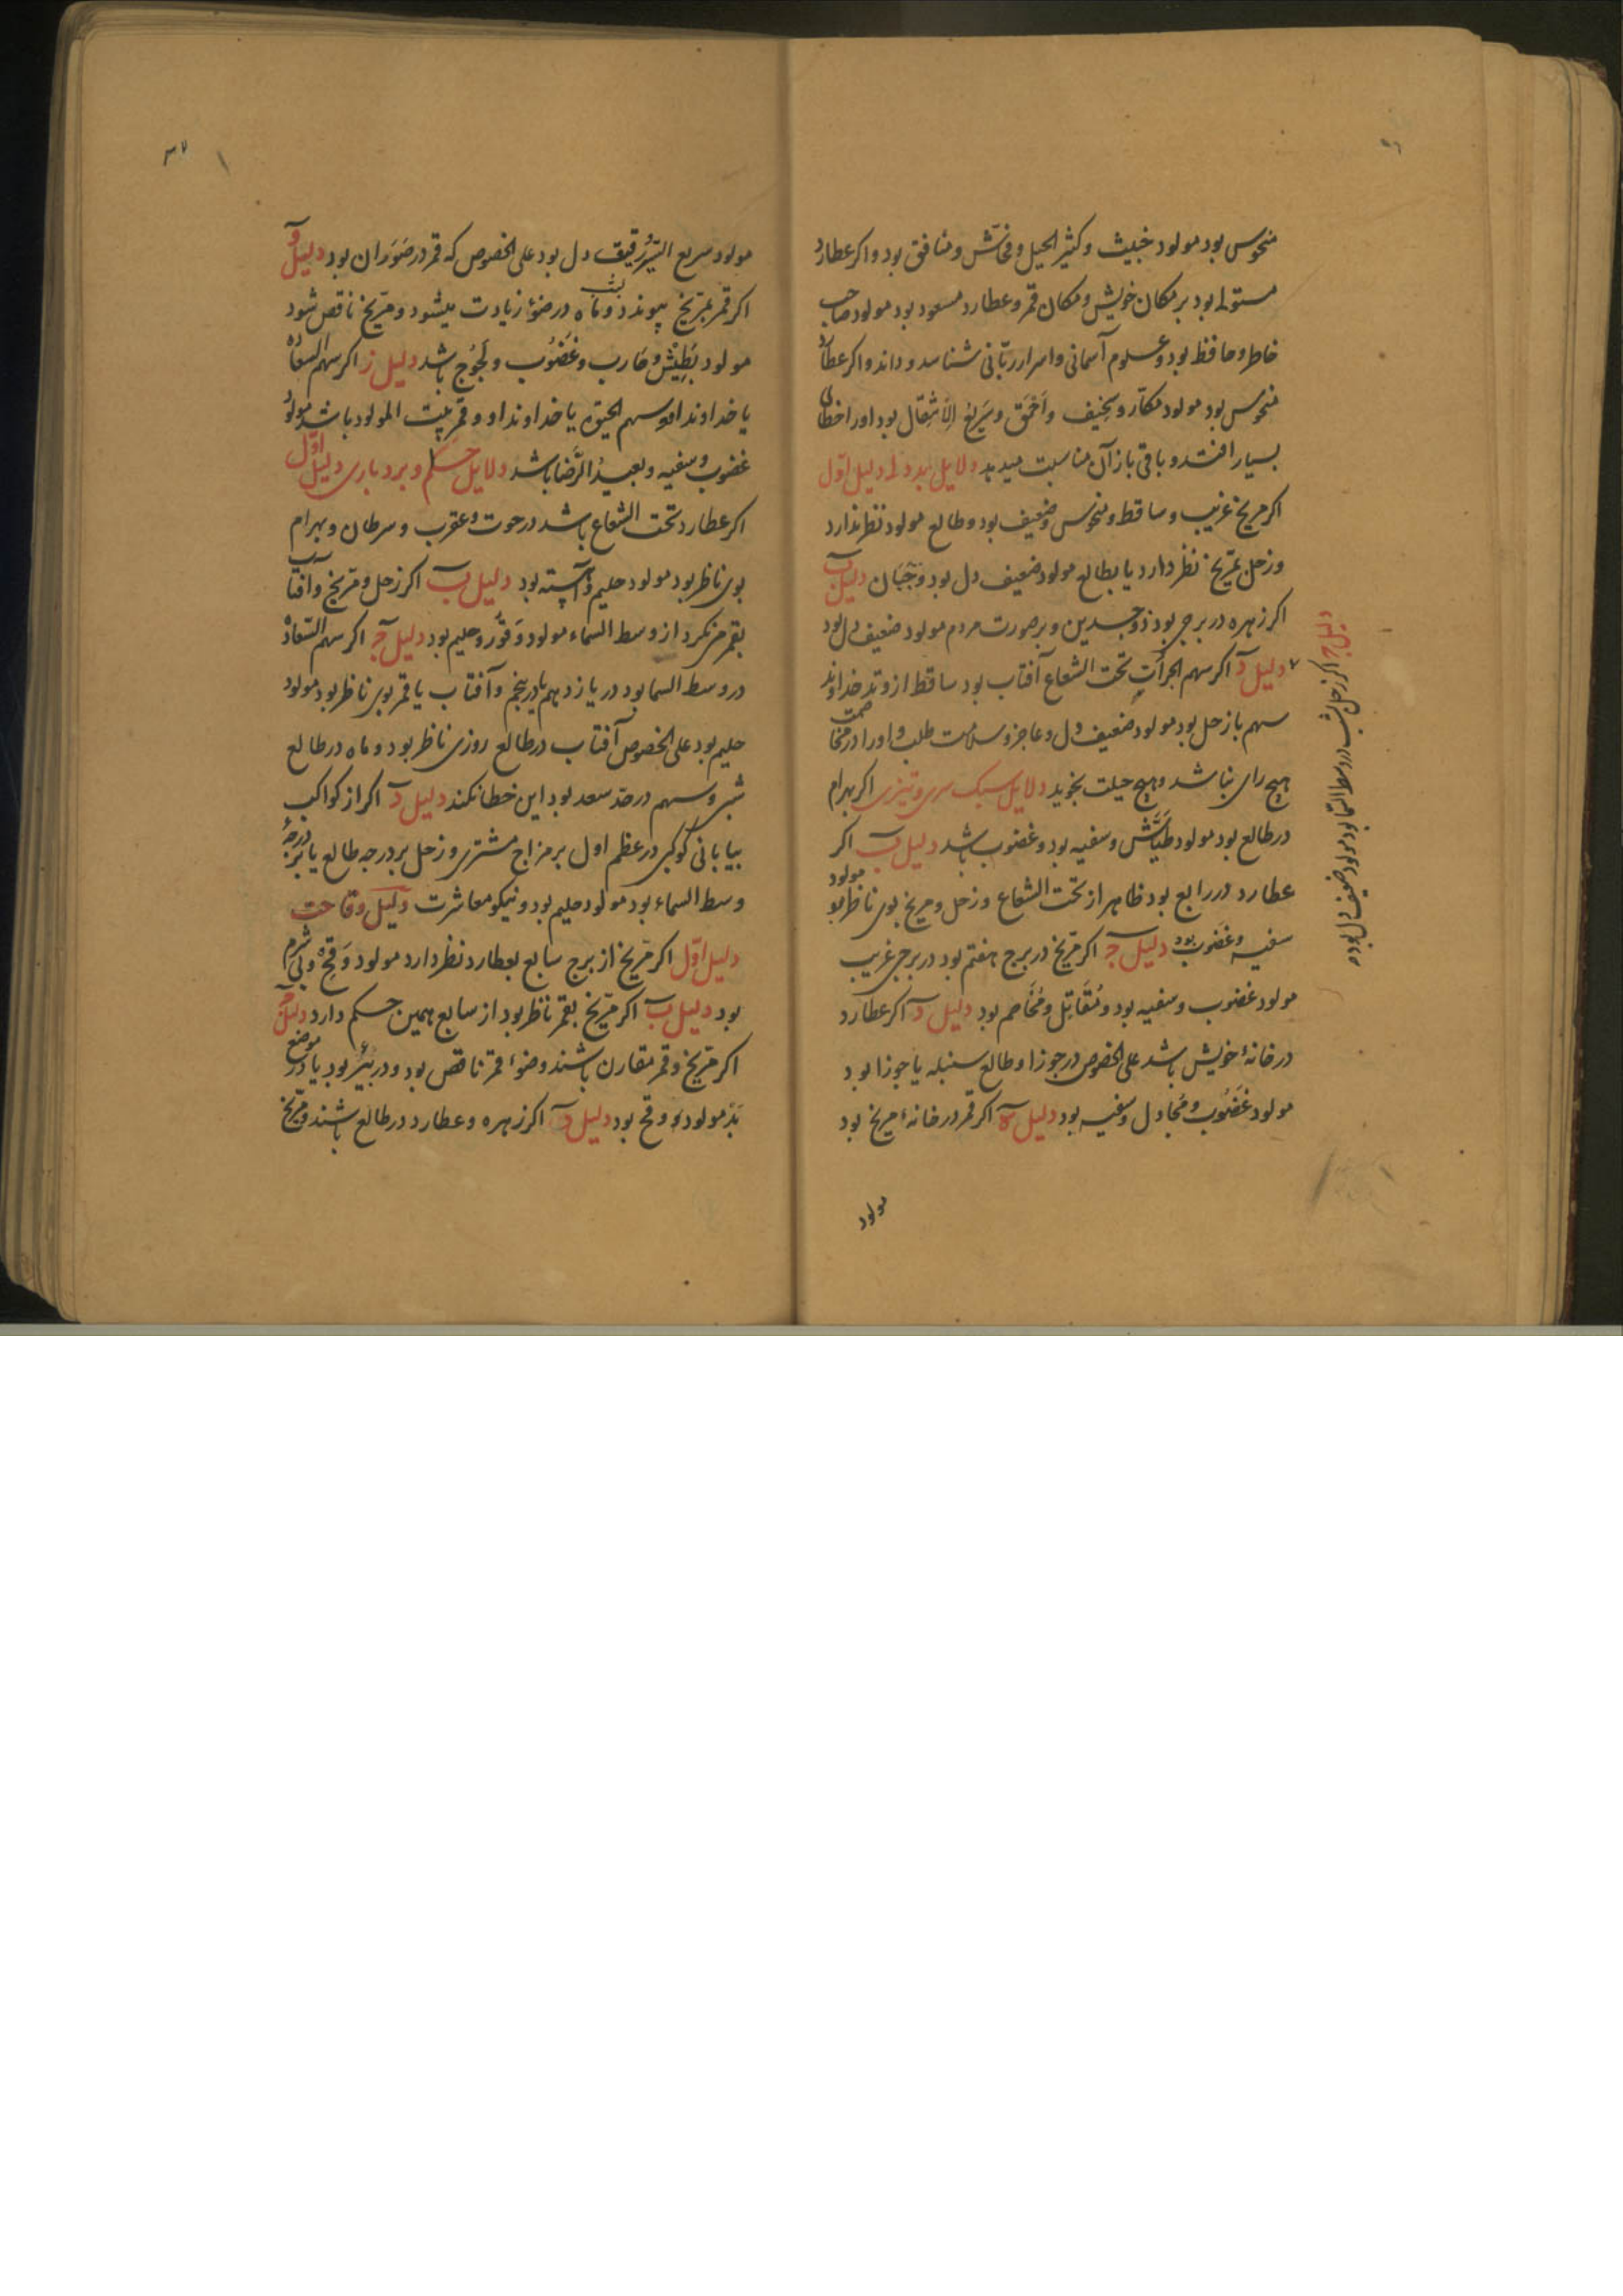 منحوس بود مولود خبیث و کثیر الحیل و فحّاش و منافق بود و اکر عطارد
مستولی بود بر مکان خویش و مکان قمر و عطارد مسعود بود مولود صاحب
خاطر و حافظ بود و علوم آسمانی و اسرار ربّانی شناسد و داند و اکر عطارد
منحوس بود مولود مکّار و سخیف و احمق و سریع الانتقال بود اورا خطای
بسیار افتد و باقی بازآن مناسبت میدهد دلایل بددلی دلیل اوّل
اکر مریخ غریب و ساقط و منحوس و ضعیف بود و طالع مولود نظر ندارد
و زحل بمریخ نظر دارد یا بطالع مولود ضعیف دل بود و جبان دلیل ب
اکر زهره در برجی بود ذو جسدین و بر صورت مردم مولود ضعیف دل بود
دلیل د اکر سهم الجرأت تحت الشعاع آفتاب بود ساقط از وتد خداوند
سهم باز حل بود مولود ضعیف دل و عاجز و سلامت طلب و اورا در مخاصمت
هیچ رای نباشد و هیچ حیلت نجوید دلایل سبک سری و تیزی اکر بهرام
در طالع بود مولود طیّاش و سفیه بود و غضوب باشد دلیل ب اکر
عطارد در رابع بود ظاهر از تحت الشعاع و زحل و مریخ بوی ناظر بود مولود
سفیه و غضوب بود دلیل ج اکر مریخ در برج هفتم بود در برجی غریب
مولود غضوب و سفیه بود و مقاتل و مخاصم بود دلیل د اکر عطارد
در خانهٔ خویش باشد علی الخصوص در جوزا و طالع سنبله یا جوزا بود
مولود غضوب و مجادل و سفیه بود دلیل ه اکر قمر در خانهٔ مریخ بود
مولود
دلیل ج اکر زحل بشب در وسط السما بود مولود ضعیف دل بود
۳۷
مولود سریع السیر و رقیق دل بود علی الخصوص که قمر در بود دلیل و
اکر قمر بمرّیخ پیوندد و ماه در ضوء زیادت میشود و مرّیخ ناقص شود
مولود بطّیش و ضارب و غضوب و لجوج باشد دلیل ز اکر سهم السعاده
یا خداوند او و سهم الحیوة یا خداوند او و قمر ببیت المولود باشد مولود
غضوب و سفیه و بعید الرّضا باشد دلایل حلم و بردباری دلیل اوّل
اکر عطارد تحت الشعاع باشد در حوت و عقرب و سرطان و بهرام
بوی ناظر بود مولود حلیم و آهسته بود دلیل ب اکر زحل و مرّیخ و آفتاب
بقمر نکرد از وسط السماء مولود وقور و حلیم بود دلیل ج اکر سهم السّعادة
در وسط السما بود در یازدهم یا در پنجم و آفتاب یا قمر بوی ناظر بود مولود
حلیم بود علی الخصوص آفتاب در طالع روزی ناظر بود و ماه در طالع
شبی و سهم در حدّ سعد بود این خطا نکند دلیل د اکر از کواکب
بیابانی کوکبی در عظم اول بر مزاج مشتری و زحل بر درجه طالع یا بر درجهٔ
وسط السماء بود مولود حلیم بود و نیکو معاشرت دلیل وقاحت
دلیل اوّل اکر مرّیخ از برج سابع بعطارد نظر دارد مولود وقح و بی شرم
بود دلیل ب اکر مرّیخ بقمر ناظر بود از سابع همین حکم دارد دلیل ج
اکر مرّیخ و قمر مقارن باشند و ضوء قمر ناقص بود و در بود یا در موضع
بد مولود وقح بود دلیل د اکر زهره و عطارد در طالع باشند و مرّیخ